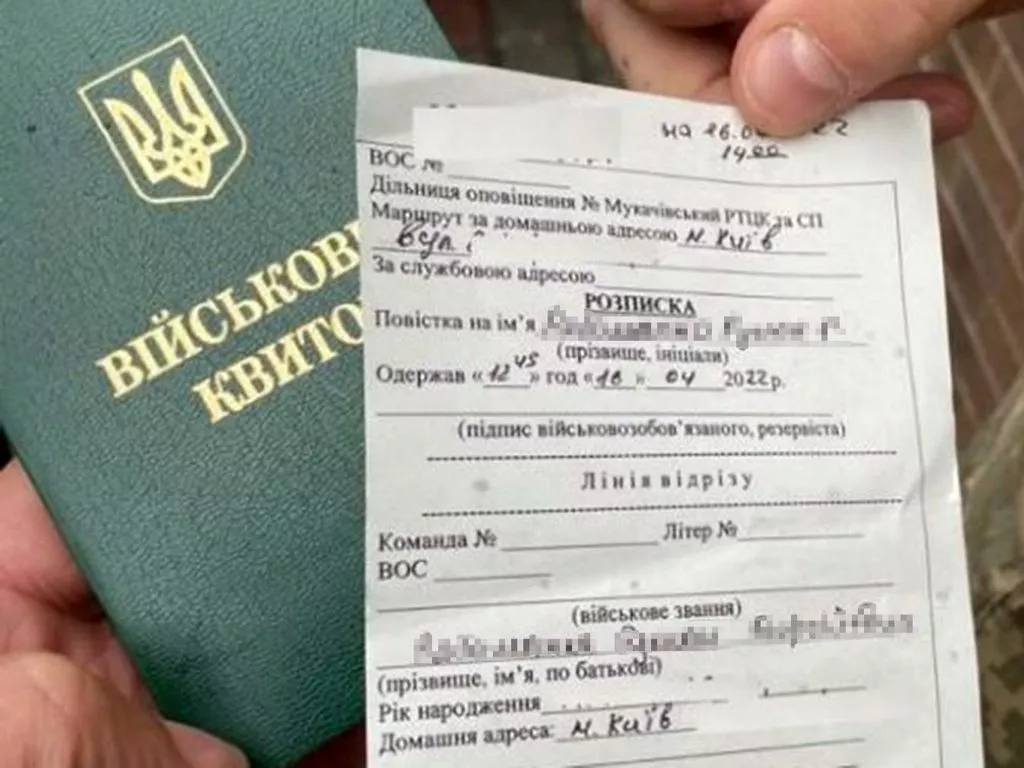 ВІЙСЬКОВ
КВИТО
на 16.0 22
14.00
ВОС №
Дільниця оповіщення № Мукачівський РТЦК та СП
Маршрут за домашньою адресою м. Київ
вул
За службовою адресою
РОЗПИСКА
Повістка на ім'я
(прізвище, ініціали)
Одержав «12 45» год «18» 04 2022 р.
(підпис військовозобов'язаного, резервіста)
Лінія відрізу
Команда № Літер №
ВОС
(військове звання)
(прізвище, ім'я, по батькові)
Рік народження
Домашня адреса: м. Київ